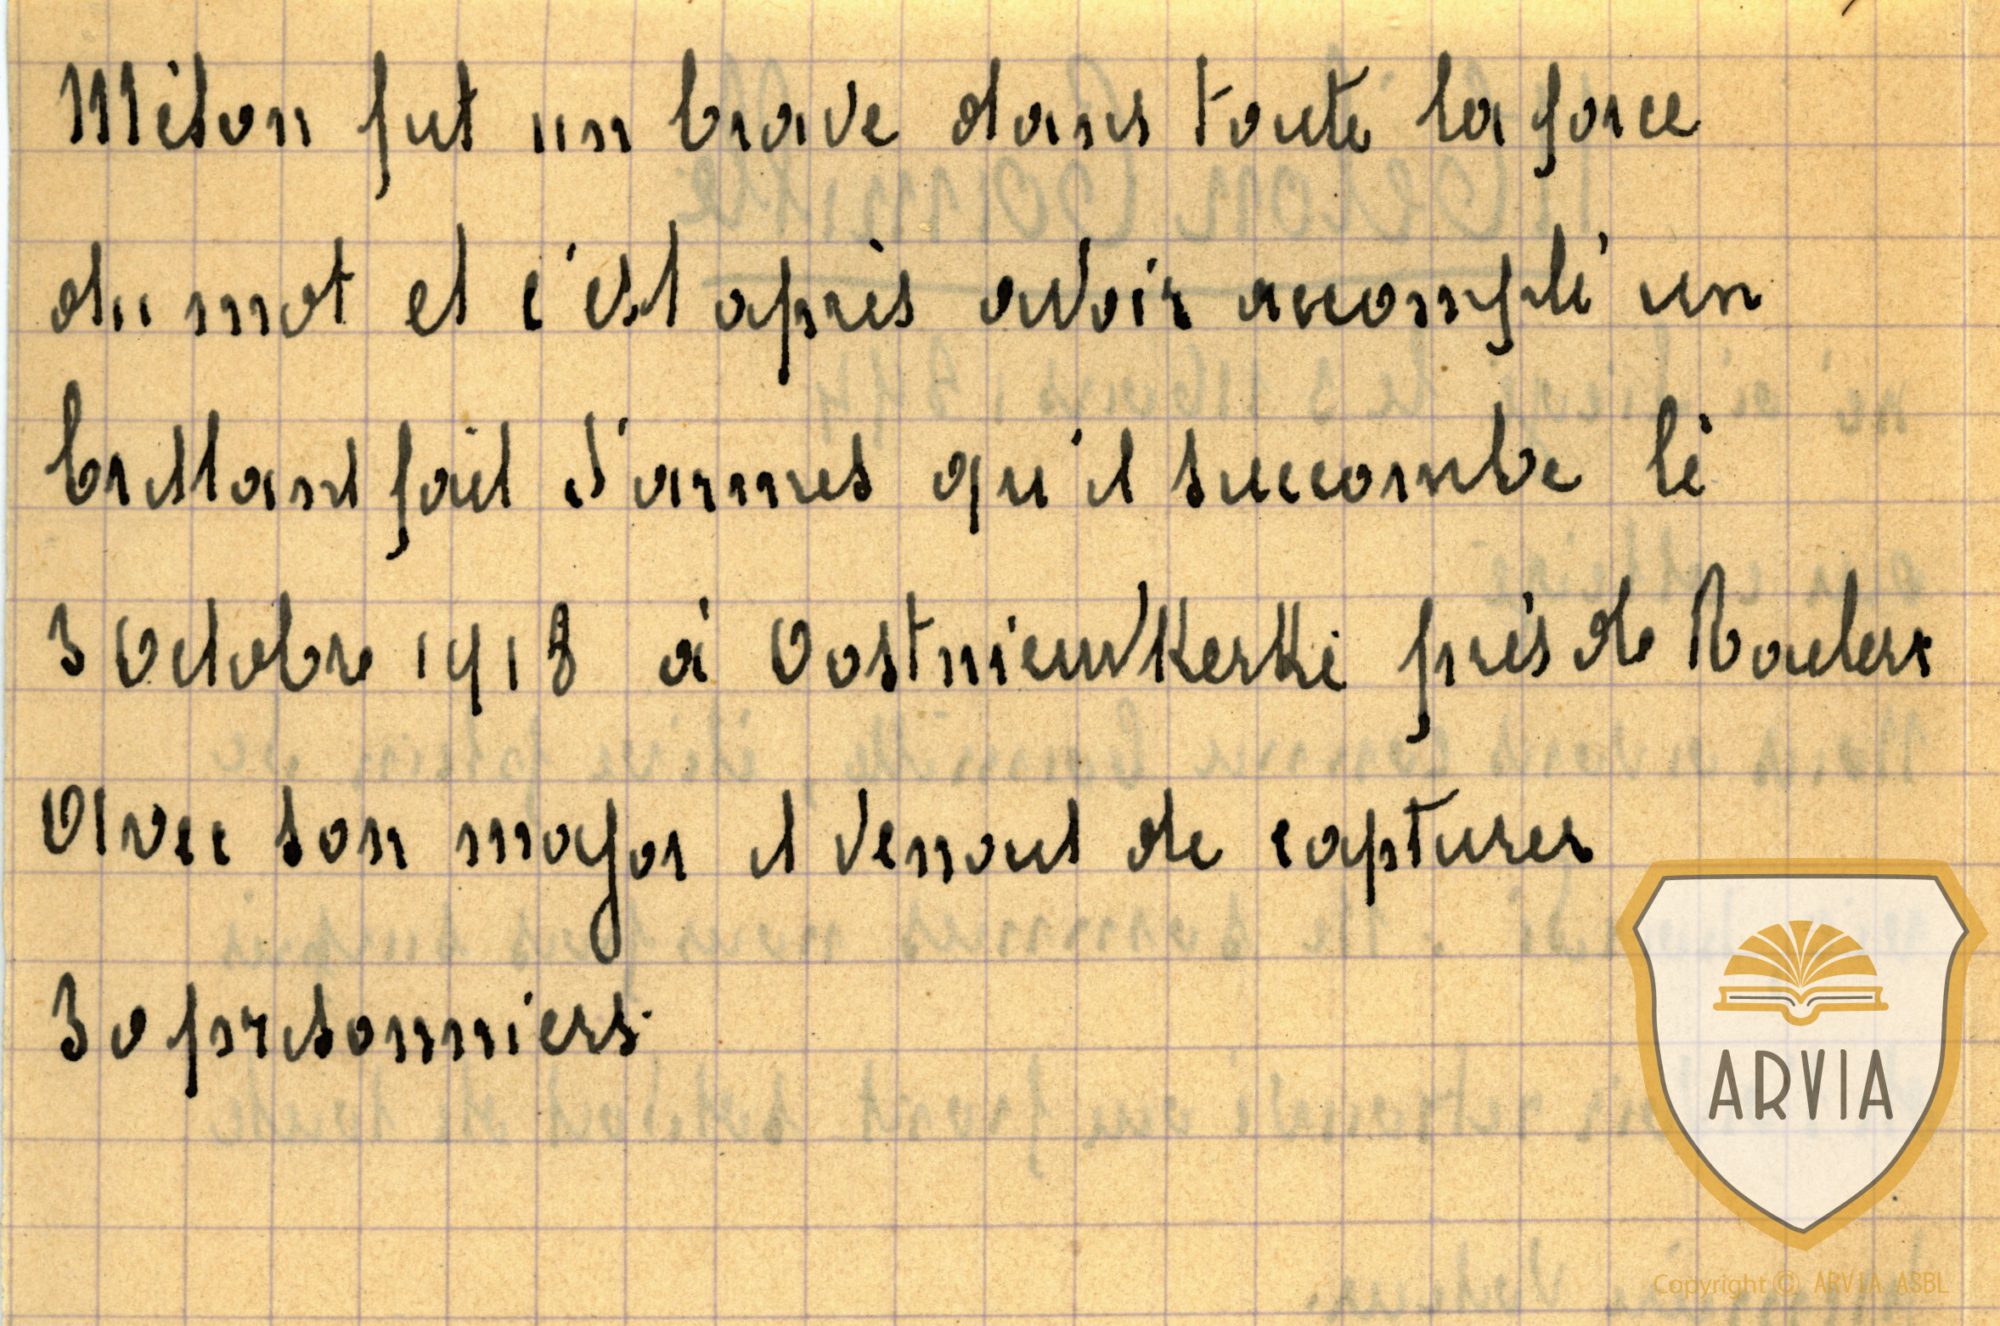 Milon fut un brave dans toute la force
du mot et c'est après avoir accompli un
brillant fait d'armes qu'il succombe le
3 Octobre 1918 à Oostnieuwkerke près de Roulers
Avec son major il venait de capturer
30 prisonniers.
ARVIA
Copyright © ARVIA ASBL